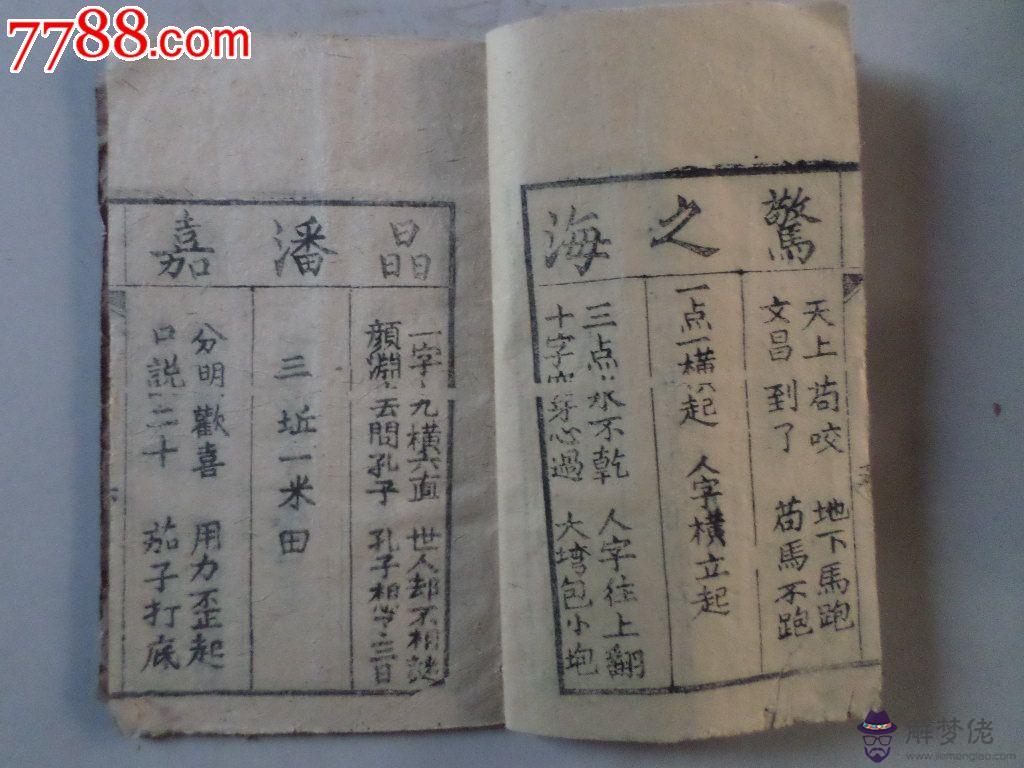 7788.com
驚
天上苟咬 地下馬跑
文昌到了 苟馬不跑
之
一点一橫起 人字橫立起
海
三点水不乾 人字往上翻
十字穿身心過 大塆包小地
晶
一字九橫六直 世人却不相識
顔淵去問孔子 孔子想了三日
潘
三坵一米田
嘉
分明歡喜 用力歪起
口説二十 茄子打底
解梦佬
www.jiemenglao.com